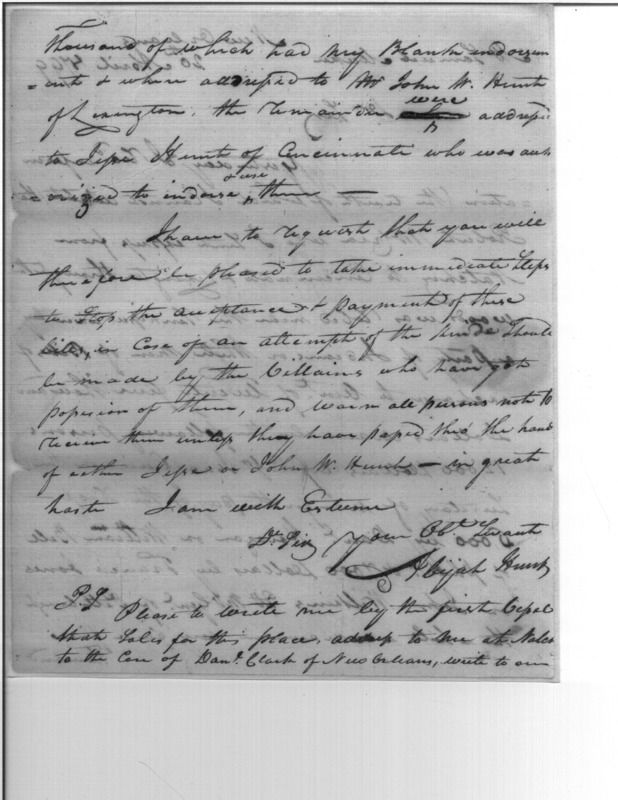 Thousand of which had my Blank endorsem
=ent & where addressed to Mr John W. Hunt
of Lexington, the remainder were addresse
to Jesse Hunt of Cincinnati who was auth
=orized to indorse & use them —
I have to request that you will
therefore be pleased to take immediate Steps
to Stop the acceptance & payment of these
bills, in Case of an attempt of the kinde Should
be made by the Villains who have got
possession of them, and warn all persons not to
receive them unless they have passed thro the hand
of either Jesse or John W. Hunt — in great
haste I am with Esteeme
Dr Sir your Obt Servant
Abijah Hunt
P.S. Please to write me by the first Vessel
that Sales for this place, address to me at Natch
to the Care of Danl. Clark of New Orleans, write to